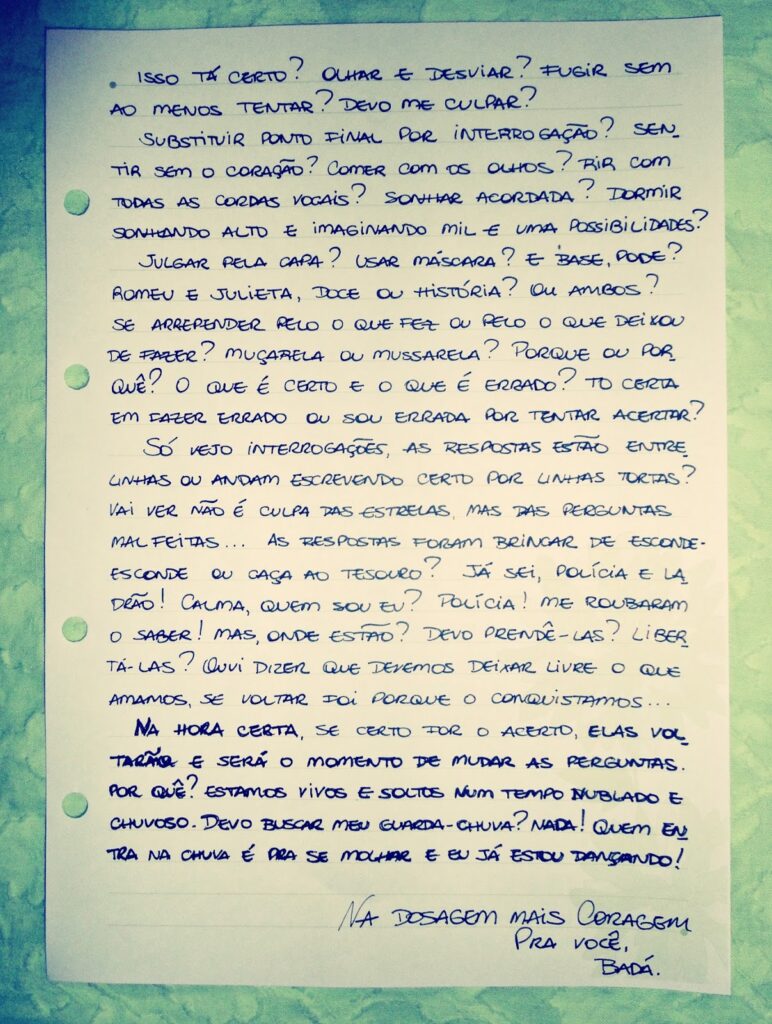 ISSO TÁ CERTO? OLHAR E DESVIAR? FUGIR SEM
AO MENOS TENTAR? DEVO ME CULPAR?
SUBSTITUIR PONTO FINAL POR INTERROGAÇÃO? SEN-
TIR SEM O CORAÇÃO? COMER COM OS OLHOS? RIR COM
TODAS AS CORDAS VOCAIS? SONHAR ACORDADA? DORMIR
SONHANDO ALTO E IMAGINANDO MIL E UMA POSSIBILIDADES?
JULGAR PELA CAPA? USAR MÁSCARA? E BASE, PODE?
ROMEU E JULIETA, DOCE OU HISTÓRIA? OU AMBOS?
SE ARREPENDER PELO O QUE FEZ OU PELO O QUE DEIXOU
DE FAZER? MUÇARELA OU MUSSARELA? PORQUE OU POR
QUÊ? O QUE É CERTO E O QUE É ERRADO? TO CERTA
EM FAZER ERRADO OU SOU ERRADA POR TENTAR ACERTAR?
SÓ VEJO INTERROGAÇÕES, AS RESPOSTAS ESTÃO ENTRE
LINHAS OU ANDAM ESCREVENDO CERTO POR LINHAS TORTAS?
VAI VER NÃO É CULPA DAS ESTRELAS, MAS DAS PERGUNTAS
MAL FEITAS... AS RESPOSTAS FORAM BRINCAR DE ESCONDE-
ESCONDE OU CAÇA AO TESOURO? JÁ SEI, POLÍCIA E LA
DRÃO! CALMA, QUEM SOU EU? POLÍCIA! ME ROUBARAM
O SABER! MAS, ONDE ESTÃO? DEVO PRENDÊ-LAS? LIBER
TÁ-LAS? OUVI DIZER QUE DEVEMOS DEIXAR LIVRE O QUE
AMAMOS, SE VOLTAR FOI PORQUE O CONQUISTAMOS...
NA HORA CERTA, SE CERTO FOR O ACERTO, ELAS VOL-
TARÃO E SERÁ O MOMENTO DE MUDAR AS PERGUNTAS.
POR QUÊ? ESTAMOS VIVOS E SOLTOS NUM TEMPO NUBLADO E
CHUVOSO. DEVO BUSCAR MEU GUARDA-CHUVA? NADA! QUEM EN
TRA NA CHUVA É PRA SE MOLHAR E EU JÁ ESTOU DANÇANDO!
NA DOSAGEM MAIS CORAGEM
PRA VOCÊ,
BADÁ.